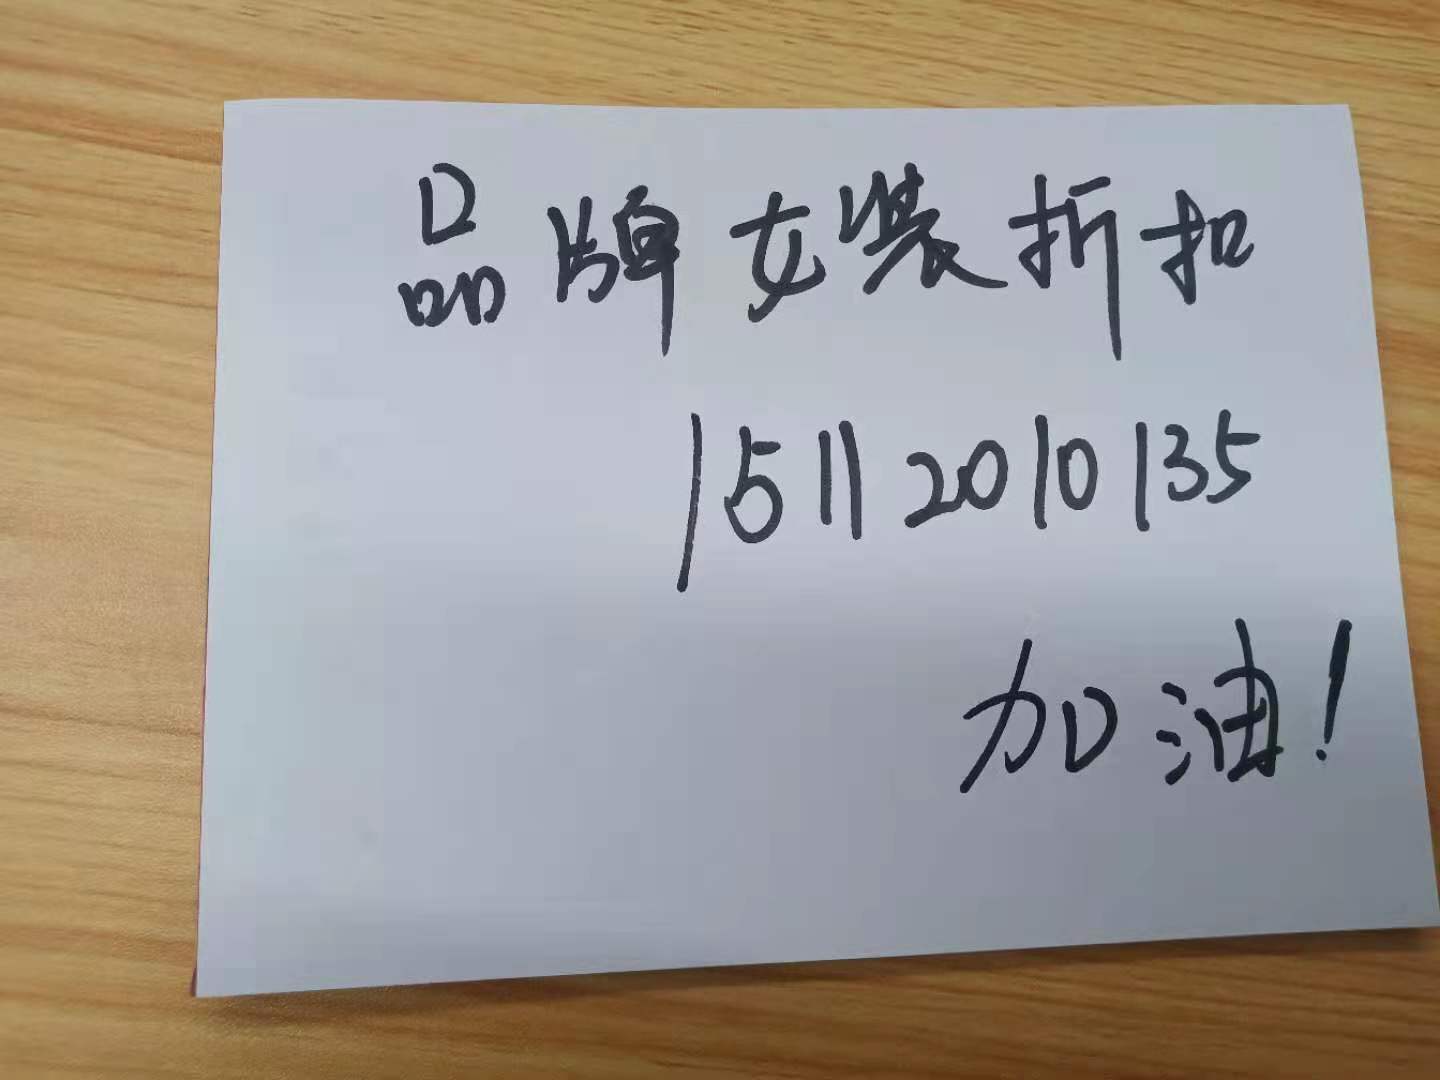 品牌女装折扣
15112010135
加油!